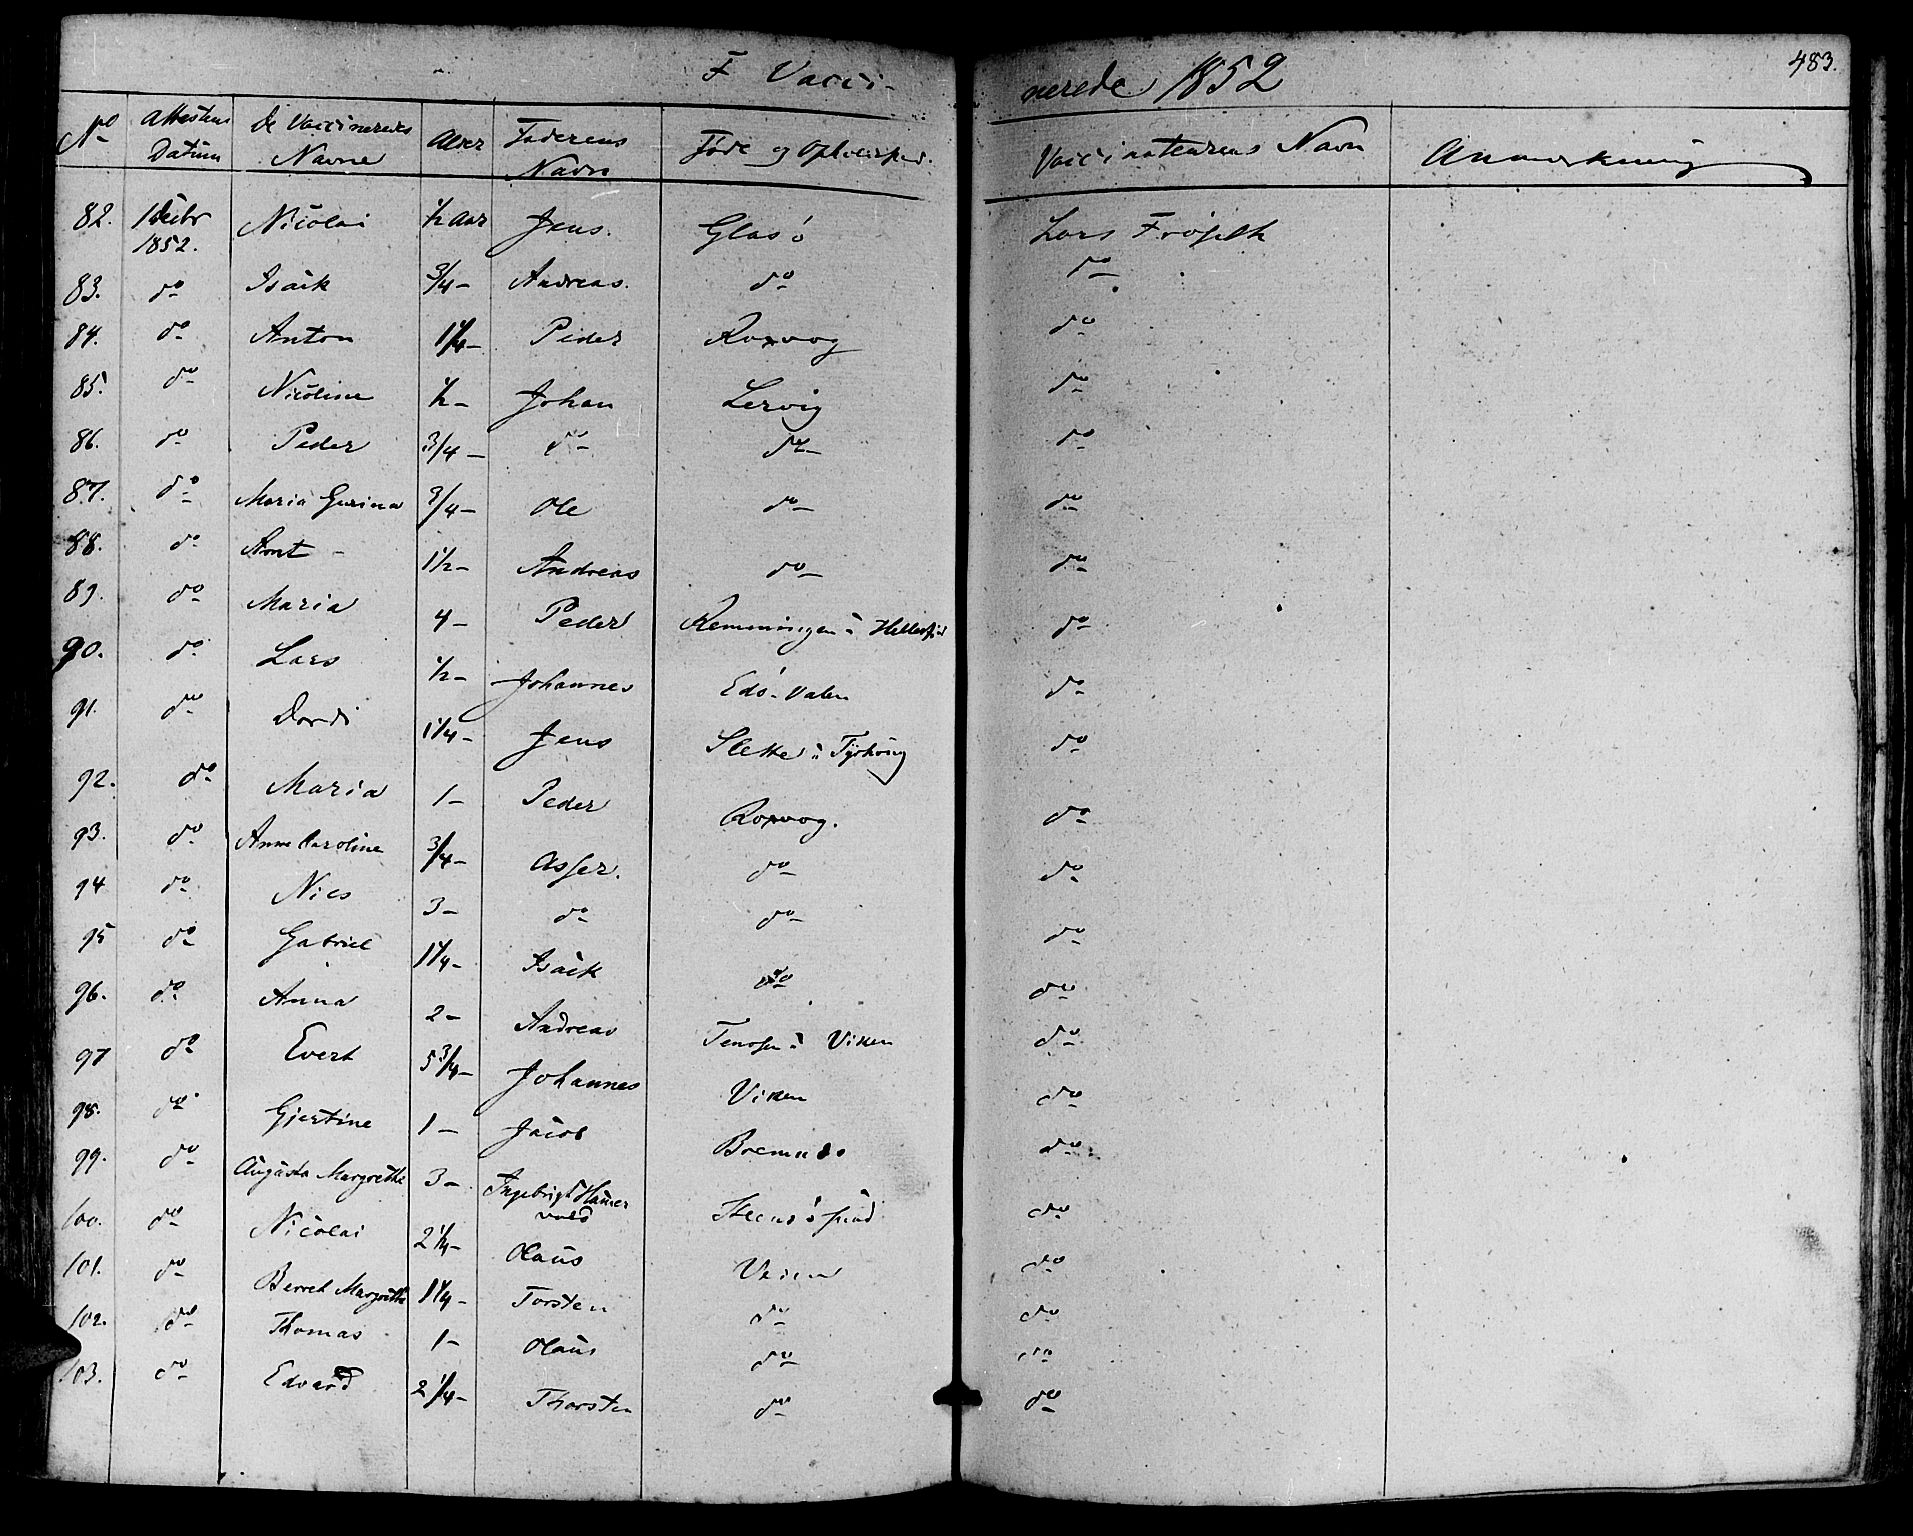 F Vacci-
nerede 1852
483.
No Attestens Datum De Vaccineredes Navne Alder Faderens Navn Føde og Opholdssted. Vaccinateurens Navn Anmærkning
82. 1 Decbr 1852. Nicolai 1/2 Aar Jens. Glasö Lars
83. do Isaik 3/4 - Andreas. do do
84. do Anton 1 1/4 - Peder Roxvog do
85. do Nicoline 1/2 - Johan Lervig do
86. do Peder 3/4 - do do do
87. do Maria Gurina 3/4 - Ole do do
88. do Arnt - 1 1/2 - Andreas do do
89. do Maria 4 - Peder Remmingen i do
90. do Lars 1/2 - Johannes Edö-Valen do
91. do Dordi 1 1/4 - Jens Slette i do
92. do Maria 1 - Peder Roxvog. do
93. do Anne Caroline 3/4 - Asser. do do
94 do Nils 3 - do do do
95 do Gabriel 1 1/4 - Isaik do do
96. do Anna 2 - Andreas i Viken do
97 do Evert 5 3/4 - Johannes Viken do
98. do Gjertine 1 - Jacob Bremnes do
99. do Augusta Margrethe 3 - Ingebrigt Hamervold do
100. do Nicolai 2 1/4 - Olaus Veien do
101. do Berret Margrethe 1 1/4 - Torsten do do
102. do Thomas 1 - Olaus do do
103. do Edvard 2 1/4 - Thorsten do do